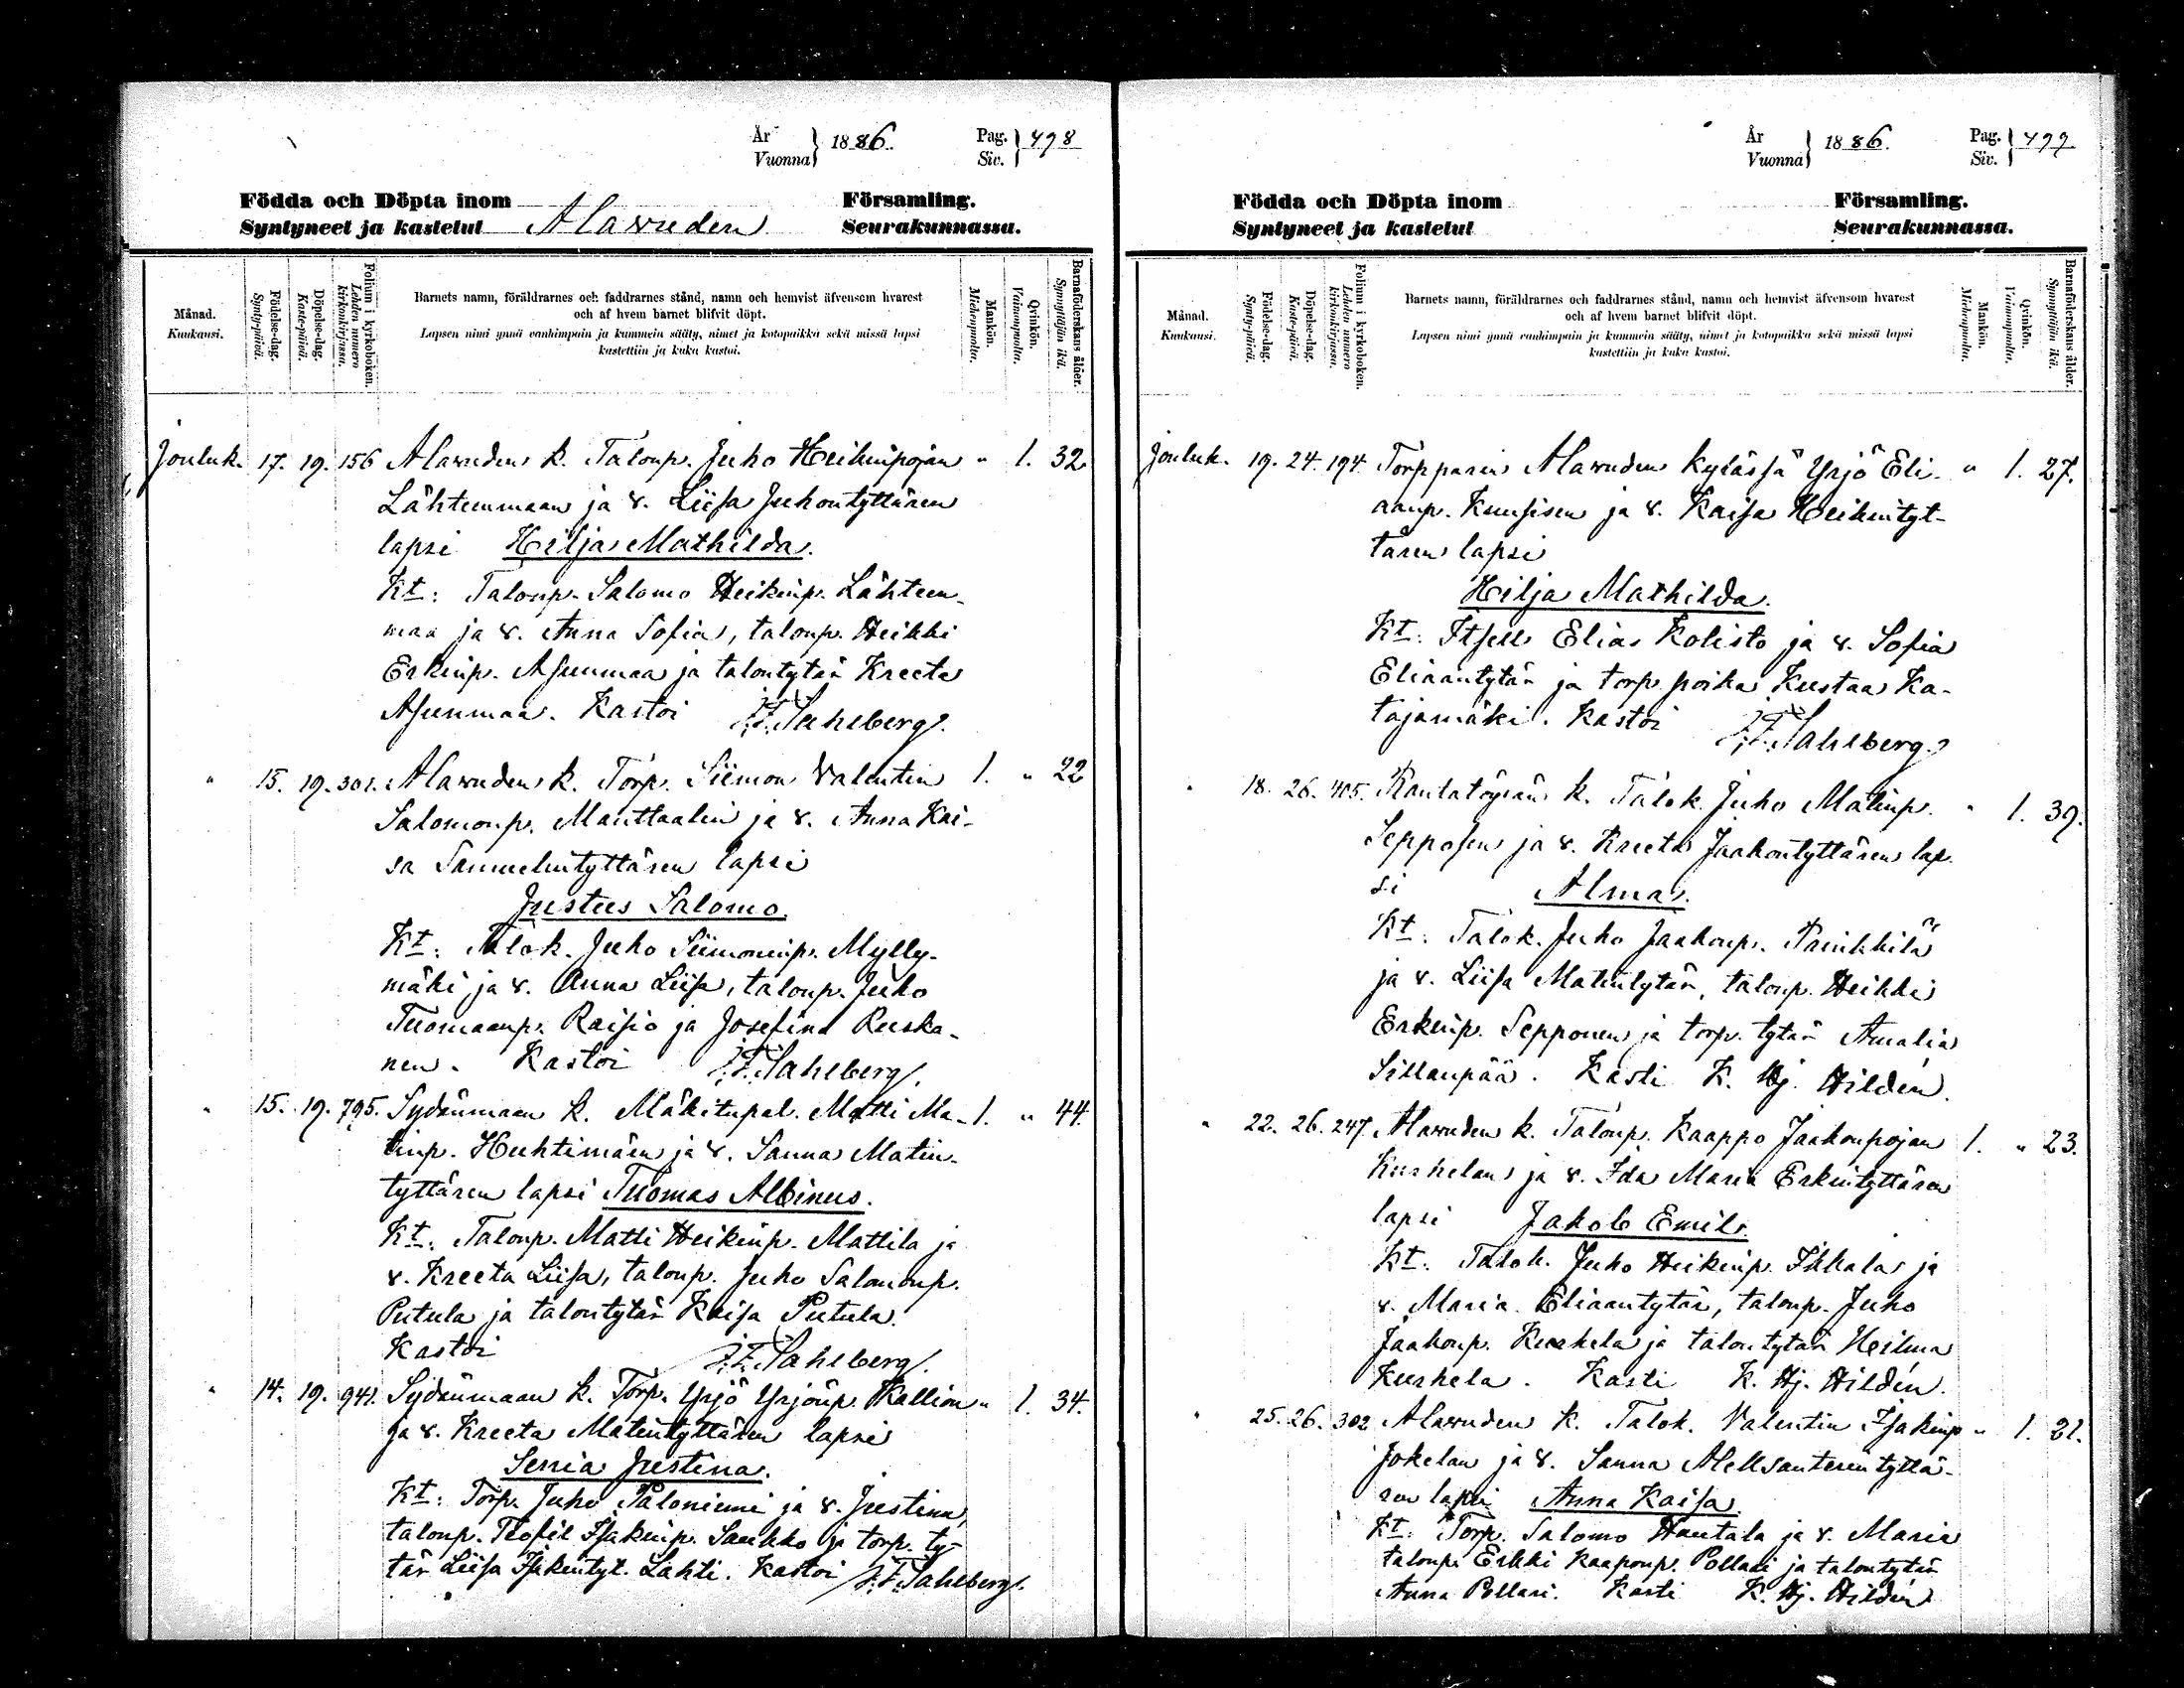 År
Vuonna } 1886.
Pag.
Siv. } 498
Födda och Döpta inom Församling.
Syntyneet ja kastetut Alavuden Seurakunnassa.
Månad.
Kuukausi.
Födelse-dag.
Synty-päivä.
Döpelse-dag.
Kaste-päivä.
Folium i kyrkoboken.
Lehden numero
kirkonkirjassa.
Barnets namn, föräldrarnes och faddrarnes stånd, namn och hemvist äfvensom hvarest
och af hvem barnet blifvit döpt.
Lapsen nimi ynnä vanhimpain ja kummein sääty, nimet ja kotopaikka sekä missä lapsi
kastettiin ja kuka kastoi.
Mankön.
Miehenpuolta.
Qvinkön.
Vaimonpuolta.
Barnaföderskans ålder.
Synnyttäjän ikä.
Jouluk. 17. 19. 156 Alavuden k. Talonp. Juho Heikinpojan " 1. 32
Lähteenmaan ja v. Liisa Juhontyttären
lapsi Hilja Mathilda.
Kt: Talonp. Salomo Heikinp. Lähteen-
maa ja v. Anna Sofia, talonp. Heikki
Erkinp. Asunmaa ja talontytär Kreeta
Asunmaa. Kastoi J.F. Sahlberg.
" 15. 19. 301. Alavuden k. Torp. Siimon Valentin 1. " 22
Salomonp. Manttaalin ja v. Anna Kai-
sa Samuelintyttären lapsi
Justus Salomo.
Kt: Talok. Juho Siimoninp. Mylly-
mäki ja v. Anna Liisa, talonp. Juho
Tuomaanp. Raisio ja Josefina Ruska-
nen. Kastoi J.F. Sahlberg.
" 15. 19. 795. Sydänmaan k. Mäkitupal. Matti Ma- 1. " 44.
tinp. Huhtimäen ja v. Sanna Matin-
tyttären lapsi Tuomas Albinus.
Kt: Talonp. Matti Heikinp. Mattila ja
v. Kreeta Liisa, talonp. Juho Salomonp.
Putula ja talontytär Kaisa Putula.
Kastoi J.F. Sahlberg.
" 14. 19. 941. Sydänmaan k. Torp. Yrjö Yrjönp. Kallion " 1. 34.
ja v. Kreeta Matintyttären lapsi
Senia Justina.
Kt: Torp. Juho Paloniemi ja v. Justina,
talonp. Teofil Isakinp. Saukko ja torp. ty-
tär Liisa Isakintyt. Lahti. Kastoi J.F. Sahlberg.
År
Vuonna } 1886.
Pag.
Siv. } 499
Födda och Döpta inom Församling.
Syntyneet ja kastetut Seurakunnassa.
Månad.
Kuukausi.
Födelse-dag.
Synty-päivä.
Döpelse-dag.
Kaste-päivä.
Folium i kyrkoboken.
Lehden numero
kirkonkirjassa.
Barnets namn, föräldrarnes och faddrarnes stånd, namn och hemvist äfvensom hvarest
och af hvem barnet blifvit döpt.
Lapsen nimi ynnä vanhimpain ja kummein sääty, nimet ja kotopaikka sekä missä lapsi
kastettiin ja kuka kastoi.
Mankön.
Miehenpuolta.
Qvinkön.
Vaimonpuolta.
Barnaföderskans ålder.
Synnyttäjän ikä.
Jouluk. 19. 24. 194. Torpparin Alavuden kylässä Yrjö Eli- " 1. 27.
aanp. Kuusisen ja v. Kaisa Heikintyt-
tären lapsi
Hilja Mathilda.
Kt: Itsell. Elias Kolisto ja v. Sofia
Eliaantytär ja torp. poika Kustaa Ka-
tajamäki. Kastoi J.F. Sahlberg.
" 18. 26. 405. Rantatöysän k. Talok. Juho Matinp. " 1. 39.
Sepposen ja v. Kreeta Jaakontyttären lap-
si Alma.
Kt: Talok. Juho Jaakonp.
ja v. Liisa Matintytär, talonp. Heikki
Erkinp. Sepponen ja torp. tytär Amalia
Sillanpää. Kasti K. Hj. Hildén.
" 22. 26. 247. Alavuden k. Talonp. Kaappo Jaakonpojan 1. " 23.
Kurhelan ja v. Ida Maria Erkintyttären
lapsi Jakob Emil.
Kt: Talok. Juho Heikinp. Ikkala ja
v. Maria Eliaantytär, talonp. Juho
Jaakonp. Kurhela ja talontytär Hilma
Kurhela. Kasti K. Hj. Hildén.
" 25. 26. 302 Alavuden k. Talok. Valentin Isakinp " 1. 21.
Jokelan ja v. Sanna Aleksanterintyttä-
ren lapsi Anna Kaisa.
Kt: Torp. Salomo Hautala ja v. Maria
talonp. Erkki Kaaponp. Pollari ja talontytär
Anna Pollari. Kasti K. Hj. Hildén